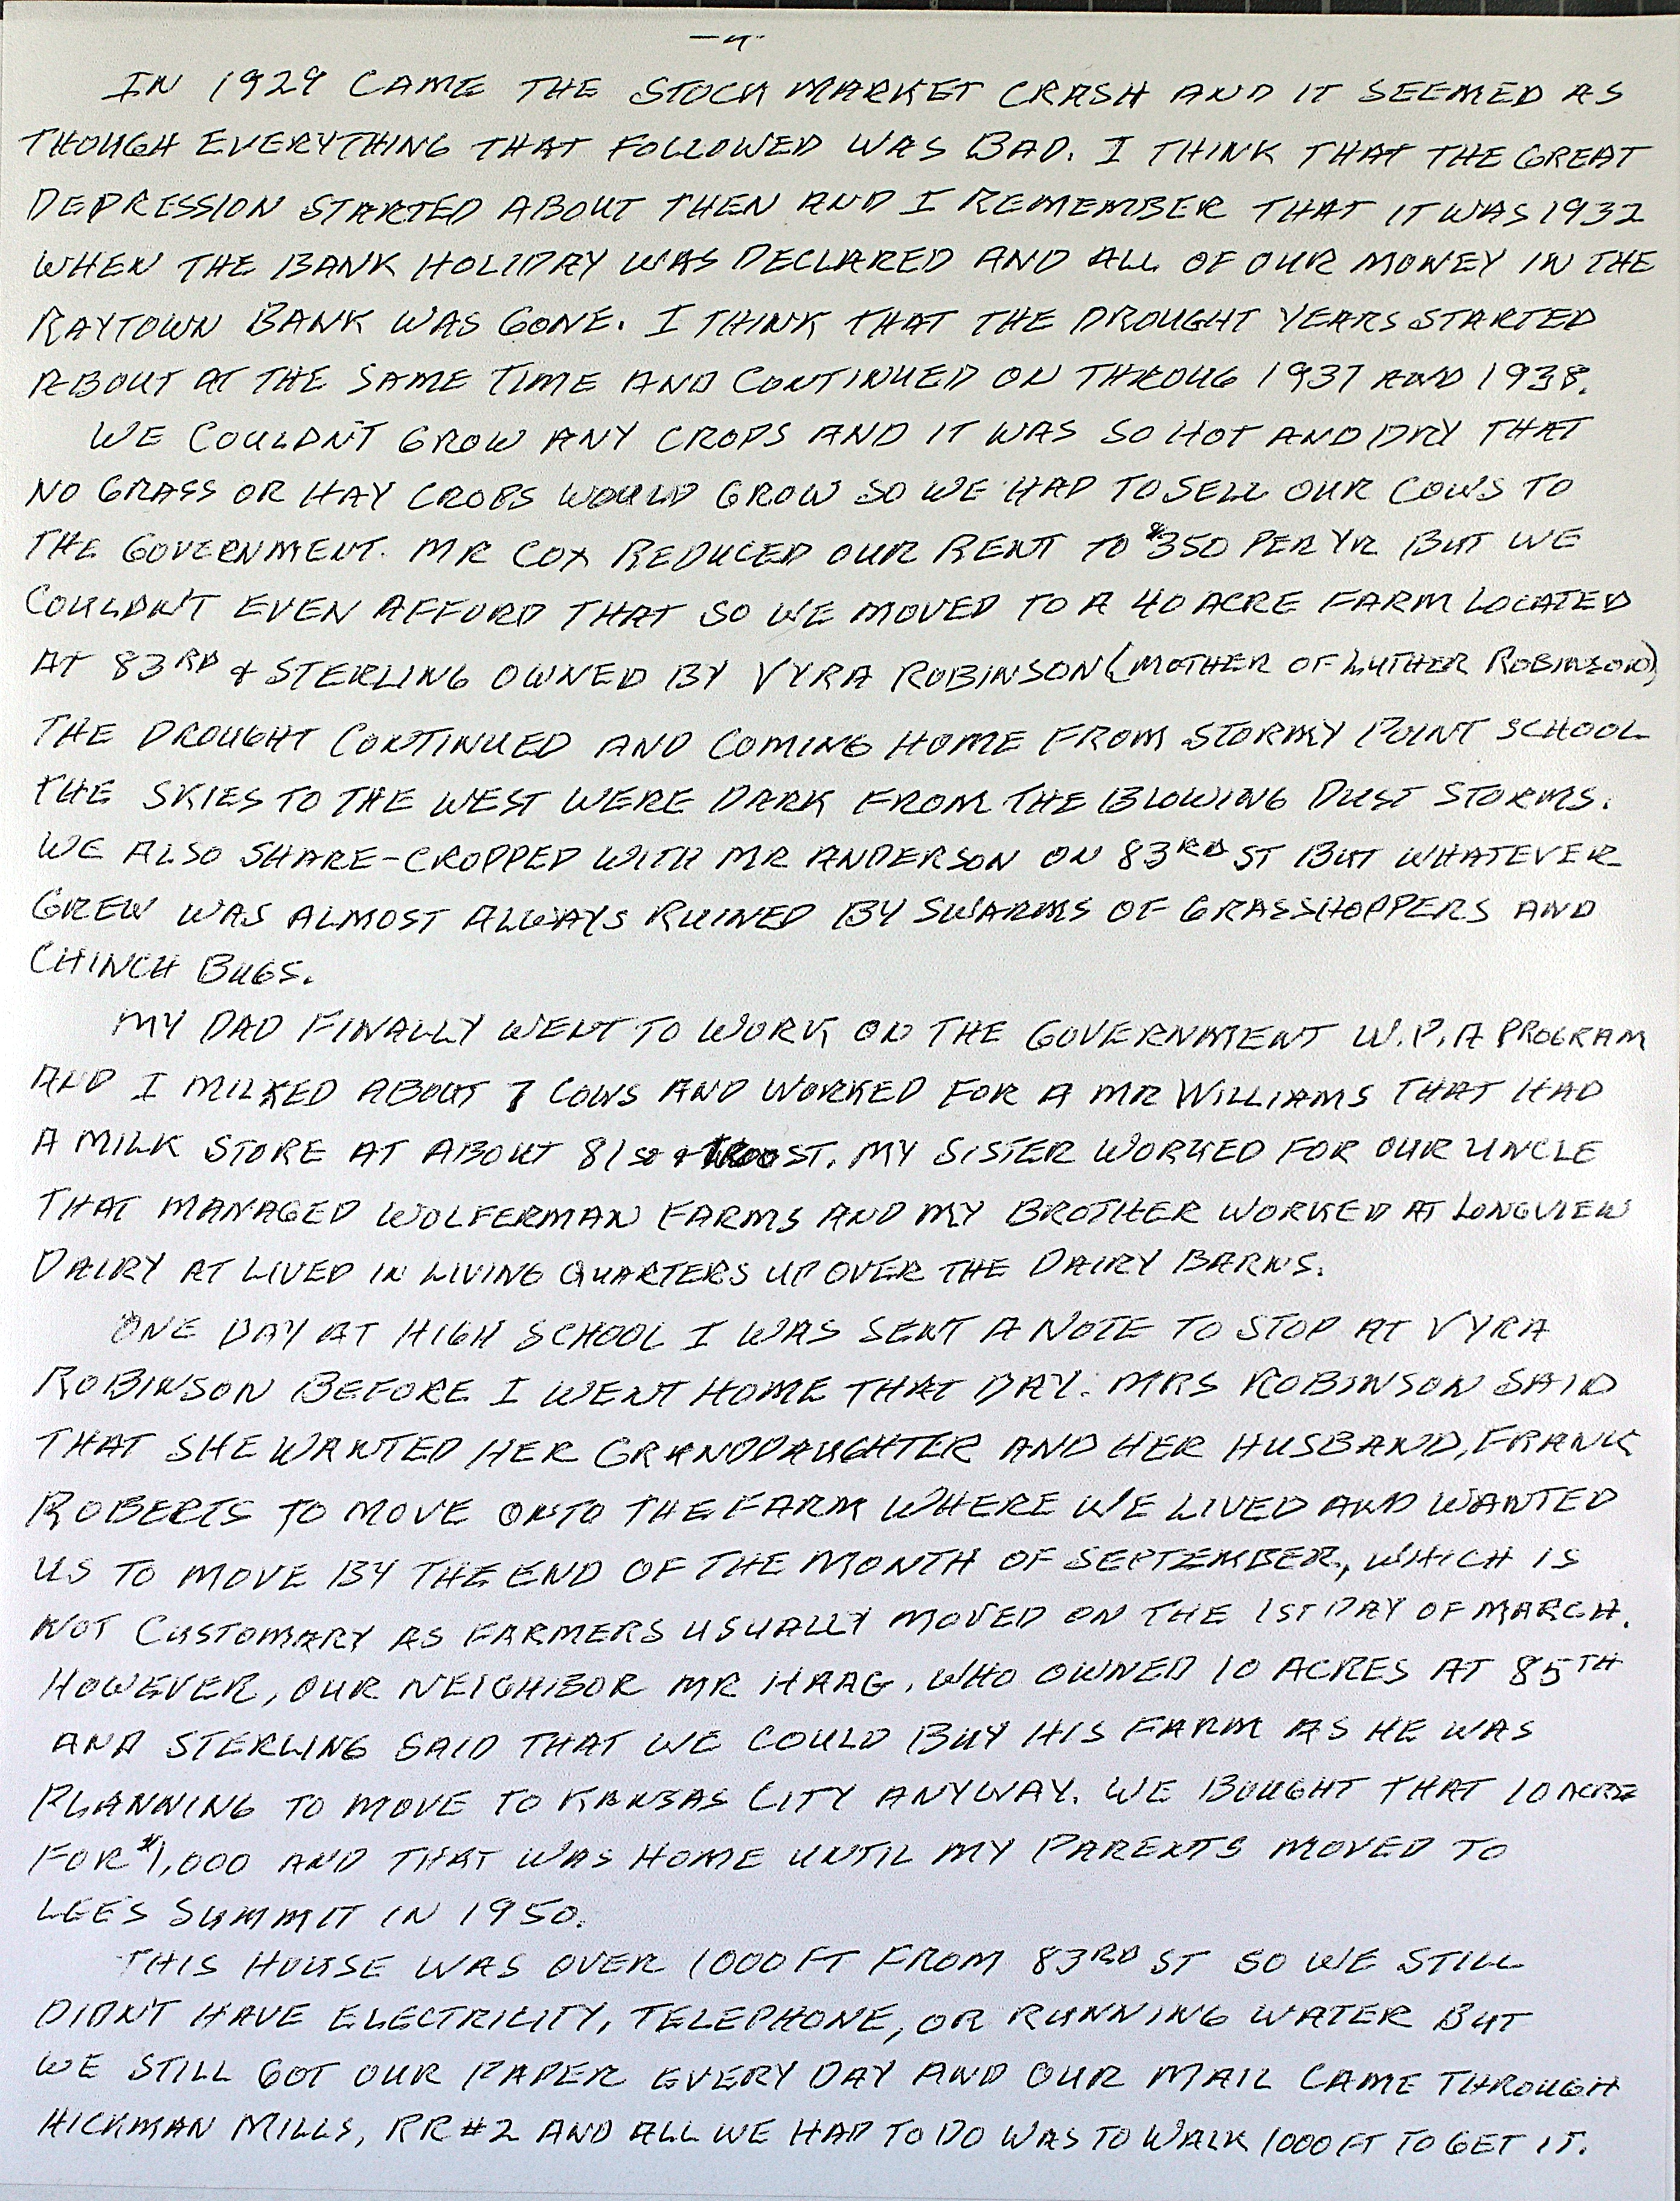 IN 1929 CAME THE STOCK MARKET CRASH AND IT SEEMED AS
THOUGH EVERYTHING THAT FOLLOWED WAS BAD. I THINK THAT THE GREAT
DEPRESSION STARTED ABOUT THEN AND I REMEMBER THAT IT WAS 1932
WHEN THE BANK HOLIDAY WAS DECLARED AND ALL OF OUR MONEY IN THE
RAYTOWN BANK WAS GONE. I THINK THAT THE DROUGHT YEARS STARTED
ABOUT AT THE SAME TIME AND CONTINUED ON THROUG 1937 AND 1938.
WE COULDN'T GROW ANY CROPS AND IT WAS SO HOT AND DRY THAT
NO GRASS OR HAY CROPS WOULD GROW SO WE HAD TO SELL OUR COWS TO
THE GOVERNMENT. MR COX REDUCED OUR RENT TO $350 PER YR BUT WE
COULDN'T EVEN AFFORD THAT SO WE MOVED TO A 40 ACRE FARM LOCATED
AT 83RD & STERLING OWNED BY VYRA ROBINSON (MOTHER OF LUTHER ROBINSON)
THE DROUGHT CONTINUED AND COMING HOME FROM STORMY POINT SCHOOL
THE SKIES TO THE WEST WERE DARK FROM THE BLOWING DUST STORMS.
WE ALSO SHARE-CROPPED WITH MR ANDERSON ON 83RD ST BUT WHATEVER
GREW WAS ALMOST ALWAYS RUINED BY SWARMS OF GRASSHOPPERS AND
CHINCH BUGS.
MY DAD FINALLY WENT TO WORK ON THE GOVERNMENT W.P.A PROGRAM
AND I MILKED ABOUT 7 COWS AND WORKED FOR A MR WILLIAMS THAT HAD
A MILK STORE AT ABOUT 81ST & TROOST. MY SISTER WORKED FOR OUR UNCLE
THAT MANAGED WOLFERMAN FARMS AND MY BROTHER WORKED AT LONGVIEW
DAIRY AT LIVED IN LIVING QUARTERS UP OVER THE DAIRY BARNS.
ONE DAY AT HIGH SCHOOL I WAS SENT A NOTE TO STOP AT VYRA
ROBINSON BEFORE I WENT HOME THAT DAY. MRS ROBINSON SAID
THAT SHE WANTED HER GRANDDAUGHTER AND HER HUSBAND, FRANK
ROBERTS TO MOVE ONTO THE FARM WHERE WE LIVED AND WANTED
US TO MOVE BY THE END OF THE MONTH OF SEPTEMBER, WHICH IS
NOT CUSTOMARY AS FARMERS USUALLY MOVED ON THE 1ST DAY OF MARCH.
HOWEVER, OUR NEIGHBOR MR HAAG, WHO OWNED 10 ACRES AT 85TH
AND STERLING SAID THAT WE COULD BUY HIS FARM AS HE WAS
PLANNING TO MOVE TO KANSAS CITY ANYWAY. WE BOUGHT THAT 10 ACRE
FOR $1,000 AND THAT WAS HOME UNTIL MY PARENTS MOVED TO
LEE'S SUMMIT IN 1950.
THIS HOUSE WAS OVER 1000 FT FROM 83RD ST SO WE STILL
DIDN'T HAVE ELECTRICITY, TELEPHONE, OR RUNNING WATER BUT
WE STILL GOT OUR PAPER EVERY DAY AND OUR MAIL CAME THROUGH
HICKMAN MILLS, RR#2 AND ALL WE HAD TO DO WAS TO WALK 1000 FT TO GET IT.